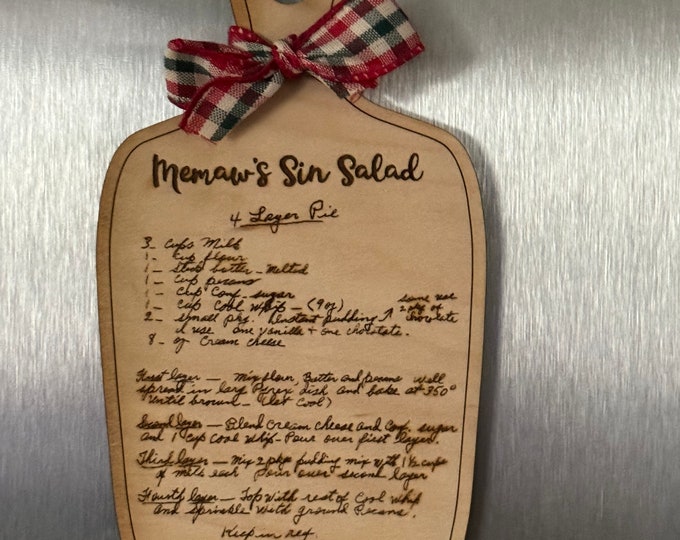 Memaw's Sin Salad
4 Layer Pie
3 - cups Milk
1 - cup flour
1 - stick butter - melted
1 - cup pecans
1 - cup Conf. sugar
1 - cup Cool Whip - (9 oz)
2 - small pkg. Instant pudding some use 2 pkg of chocolate
I use one vanilla + one chocolate.
8 - oz Cream cheese
First layer - Mix flour, Butter and pecans well
spread in larg Pyrex dish and bake at 350°
until brown - (Let Cool)
Second layer - Blend cream cheese and Conf. sugar
and 1 cup cool whip - Pour over first layer.
Third layer - Mix 2 pkgs pudding mix with 1½ cups
of milk each Pour over second layer
Fourth layer - Top with rest of Cool Whip
and sprinkle with ground Pecans.
Keep in ref.